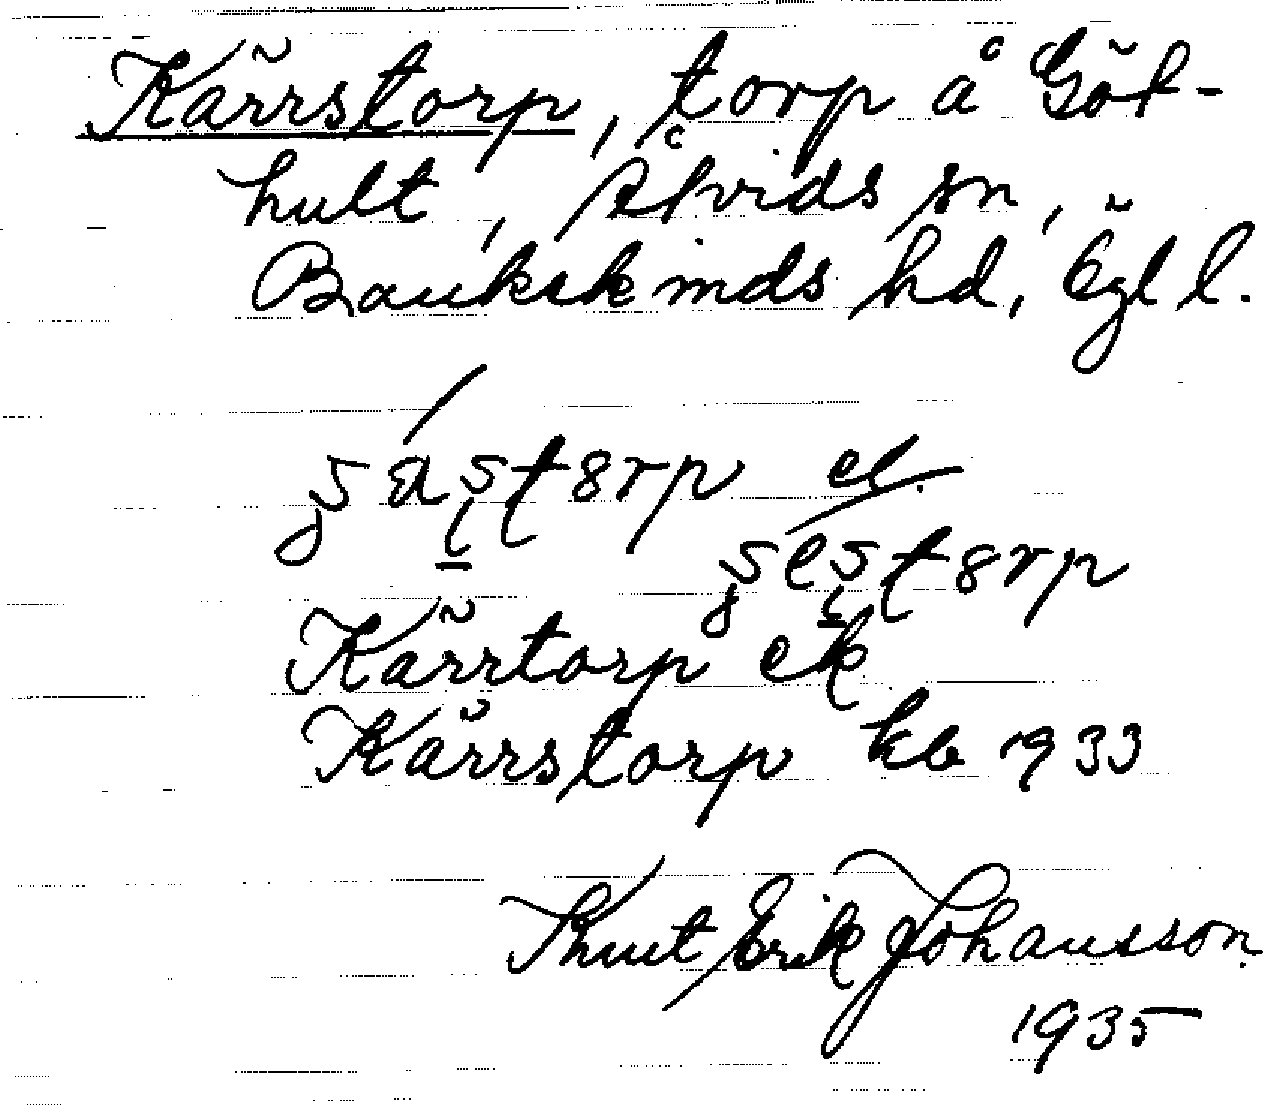 Kärrstorp, torp å Göt-
hult, Åtvids sn,
Bankekinds hd, Ögl l.
el.
Kärrtorp ek
Kärrstorp kb 1933
Knut Erik Johansson.
1935